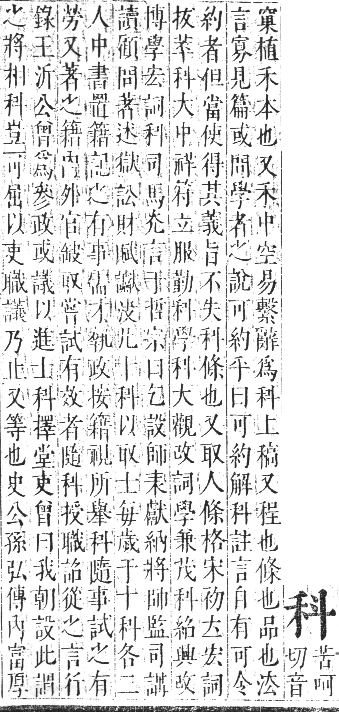 科苦呵切音
窠植禾本也又禾中空易繫辭爲科上稿又程也條也品也法
言寡見篇或問學者之說可約乎曰可約解科註言自有可令
約者但當使得其義旨不失科條也又取人條格宋初立宏詞
拔萃科大中祥符立服勤科學科大觀改詞學兼茂科紹興改
博學宏詞科司馬光言于哲宗曰乞設師表獻納將師監司講
讀顧問著述獄訟財賦讞決凡十科以取士每歲于十科各二
人中書置籍記之有事需才執政按籍視所舉科隨事試之有
勞又著之籍內外官缺取嘗試有效者隨科授職詔從之言行
錄王沂公曾爲參政或議以進士科擇堂吏曾曰我朝設此謂
之將相科豈可屈以吏職議乃止又等也史公孫弘傳內富厚